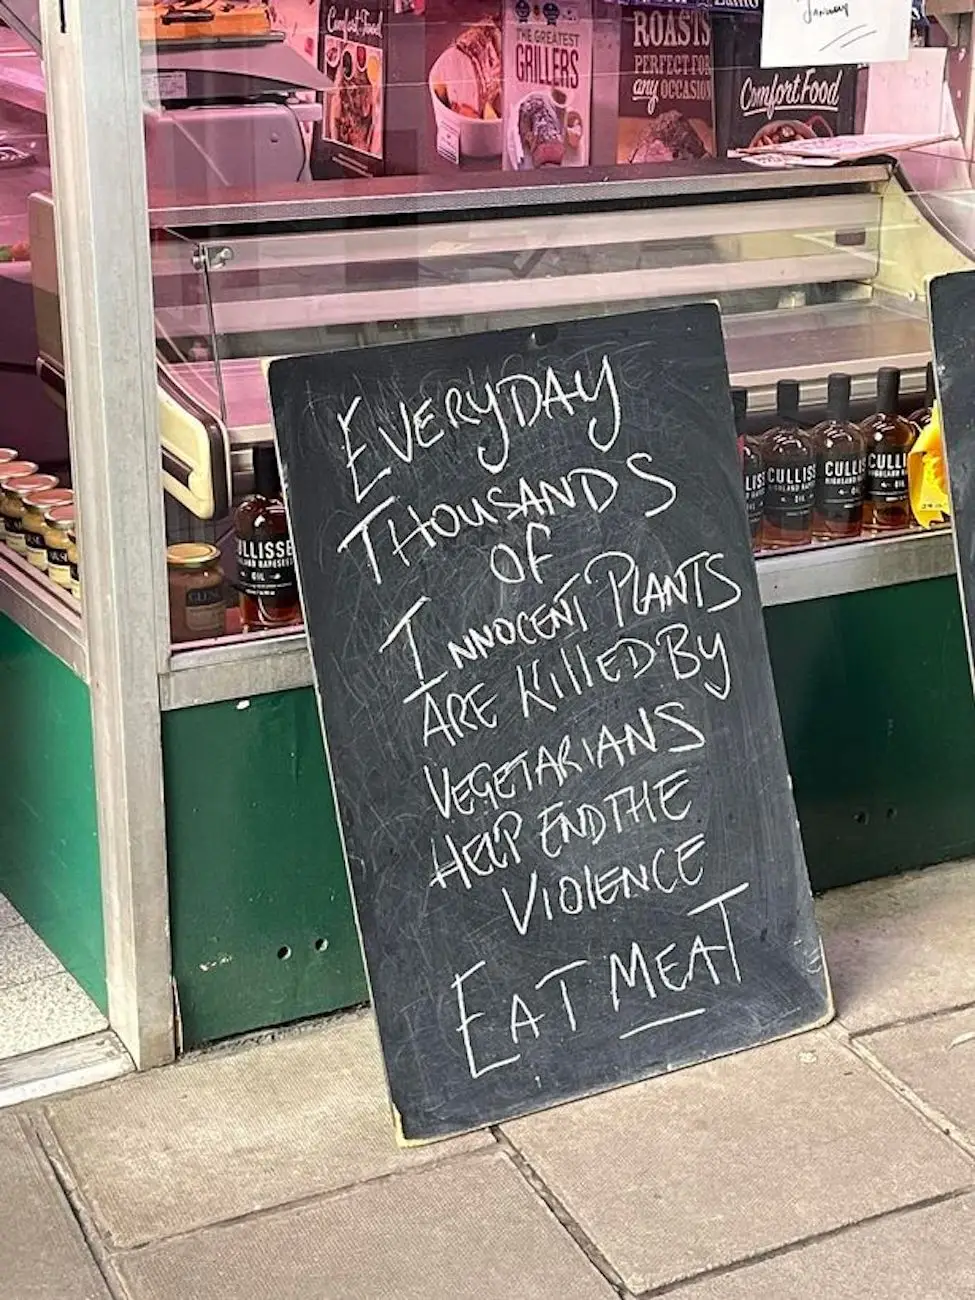 Comfort Food
THE GREATEST
GRILLERS
ROASTS
PERFECT FOR
any OCCASION
Comfort Food
January
EVERYDAY
THOUSANDS
OF
INNOCENT PLANTS
ARE KILLED BY
VEGETARIANS
HELP END THE
VIOLENCE
EAT MEAT
ULLISSE
HIGHLAND RAPESEED
OIL
LISS
CULLISS
HIGHLAND RAPE
OIL
CULLIS
HIGHLAND RAPES
OIL
CULLI
OIL